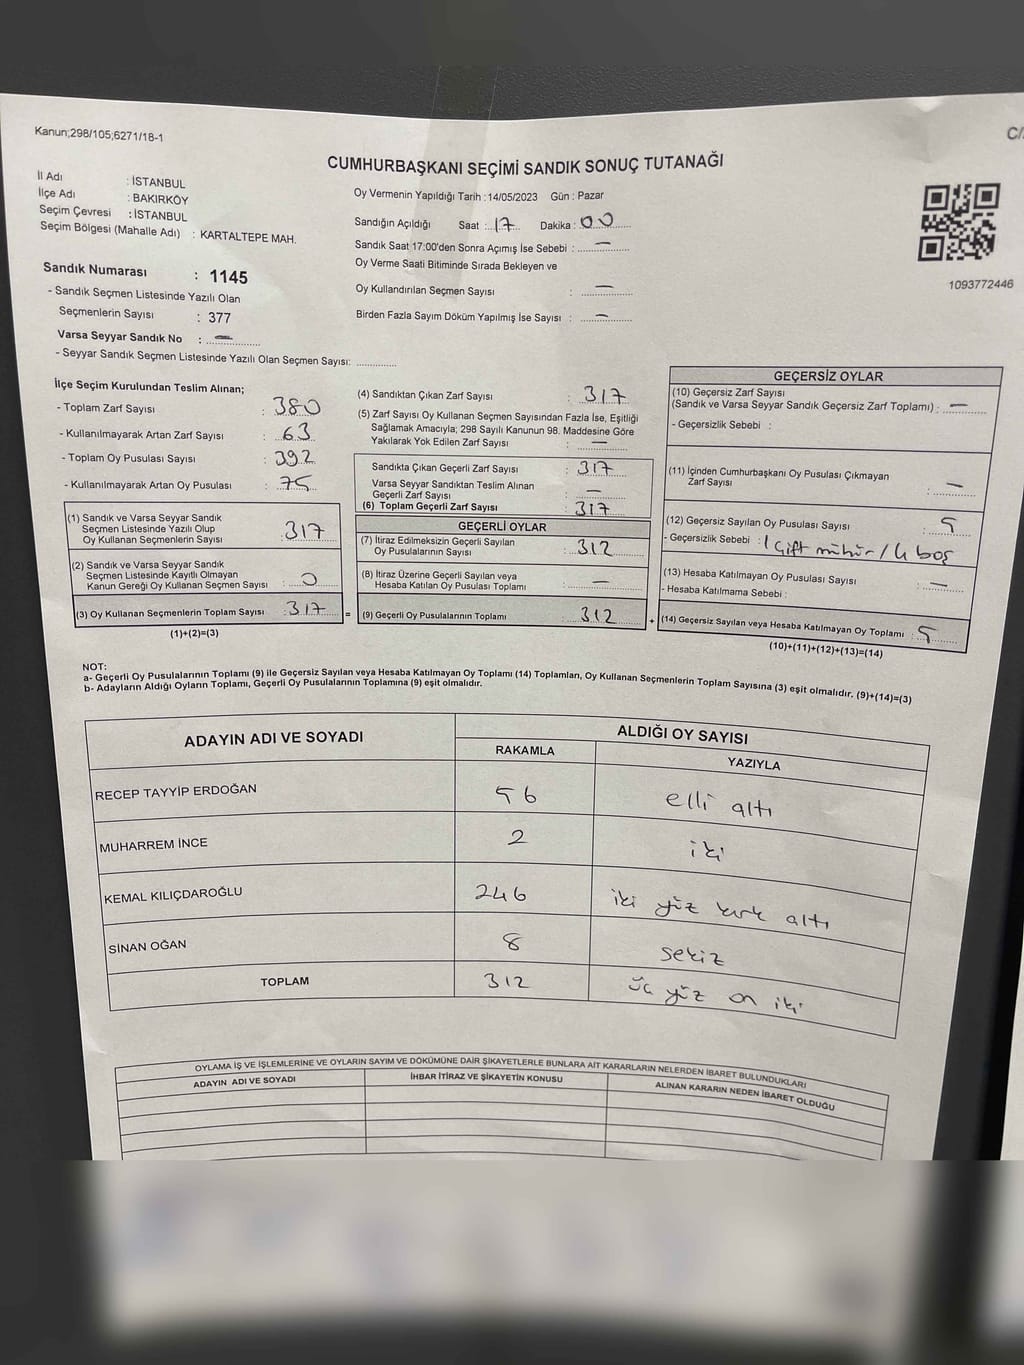 Kanun;298/105;6271/18-1
C/
CUMHURBAŞKANI SEÇİMİ SANDIK SONUÇ TUTANAĞI
İl Adı : İSTANBUL
İlçe Adı : BAKIRKÖY
Seçim Çevresi : İSTANBUL
Seçim Bölgesi (Mahalle Adı) : KARTALTEPE MAH.
Sandık Numarası : 1145
- Sandık Seçmen Listesinde Yazılı Olan
Seçmenlerin Sayısı : 377
Varsa Seyyar Sandık No : —
- Seyyar Sandık Seçmen Listesinde Yazılı Olan Seçmen Sayısı: ............
Oy Vermenin Yapıldığı Tarih : 14/05/2023 Gün : Pazar
Sandığın Açıldığı Saat : 17 Dakika : 00
Sandık Saat 17:00'den Sonra Açımış İse Sebebi : —
Oy Verme Saati Bitiminde Sırada Bekleyen ve
Oy Kullandırılan Seçmen Sayısı : —
Birden Fazla Sayım Döküm Yapılmış İse Sayısı : —
1093772446
İlçe Seçim Kurulundan Teslim Alınan;
- Toplam Zarf Sayısı : 380
- Kullanılmayarak Artan Zarf Sayısı : 63
- Toplam Oy Pusulası Sayısı : 392
- Kullanılmayarak Artan Oy Pusulası : 75
(1) Sandık ve Varsa Seyyar Sandık
Seçmen Listesinde Yazılı Olup
Oy Kullanan Seçmenlerin Sayısı : 317
(2) Sandık ve Varsa Seyyar Sandık
Seçmen Listesinde Kayıtlı Olmayan
Kanun Gereği Oy Kullanan Seçmen Sayısı : 0
(3) Oy Kullanan Seçmenlerin Toplam Sayısı : 317 =
(1)+(2)=(3)
(4) Sandıktan Çıkan Zarf Sayısı : 317
(5) Zarf Sayısı Oy Kullanan Seçmen Sayısından Fazla İse, Eşitliği
Sağlamak Amacıyla; 298 Sayılı Kanunun 98. Maddesine Göre
Yakılarak Yok Edilen Zarf Sayısı : —
Sandıkta Çıkan Geçerli Zarf Sayısı : 317
Varsa Seyyar Sandıktan Teslim Alınan
Geçerli Zarf Sayısı : —
(6) Toplam Geçerli Zarf Sayısı : 317
GEÇERLİ OYLAR
(7) İtiraz Edilmeksizin Geçerli Sayılan
Oy Pusulalarının Sayısı : 312
(8) İtiraz Üzerine Geçerli Sayılan veya
Hesaba Katılan Oy Pusulası Toplamı : —
(9) Geçerli Oy Pusulalarının Toplamı : 312 +
GEÇERSİZ OYLAR
(10) Geçersiz Zarf Sayısı
(Sandık ve Varsa Seyyar Sandık Geçersiz Zarf Toplamı) : —
- Geçersizlik Sebebi :
(11) İçinden Cumhurbaşkanı Oy Pusulası Çıkmayan
Zarf Sayısı : —
(12) Geçersiz Sayılan Oy Pusulası Sayısı : 5
- Geçersizlik Sebebi : 1 çift mühür / 4 boş
(13) Hesaba Katılmayan Oy Pusulası Sayısı : —
- Hesaba Katılmama Sebebi :
(14) Geçersiz Sayılan veya Hesaba Katılmayan Oy Toplamı : 5
(10)+(11)+(12)+(13)=(14)
NOT:
a- Geçerli Oy Pusulalarının Toplamı (9) ile Geçersiz Sayılan veya Hesaba Katılmayan Oy Toplamı (14) Toplamları, Oy Kullanan Seçmenlerin Toplam Sayısına (3) eşit olmalıdır. (9)+(14)=(3)
b- Adayların Aldığı Oyların Toplamı, Geçerli Oy Pusulalarının Toplamına (9) eşit olmalıdır.
ADAYIN ADI VE SOYADI
ALDIĞI OY SAYISI
RAKAMLA YAZIYLA
RECEP TAYYİP ERDOĞAN 56 elli altı
MUHARREM İNCE 2 iki
KEMAL KILIÇDAROĞLU 246 iki yüz kırk altı
SİNAN OĞAN 8 sekiz
TOPLAM 312 üç yüz on iki
OYLAMA İŞ VE İŞLEMLERİNE VE OYLARIN SAYIM VE DÖKÜMÜNE DAİR ŞİKAYETLERLE BUNLARA AİT KARARLARIN NELERDEN İBARET BULUNDUKLARI
ADAYIN ADI VE SOYADI İHBAR İTİRAZ VE ŞİKAYETİN KONUSU ALINAN KARARIN NEDEN İBARET OLDUĞU